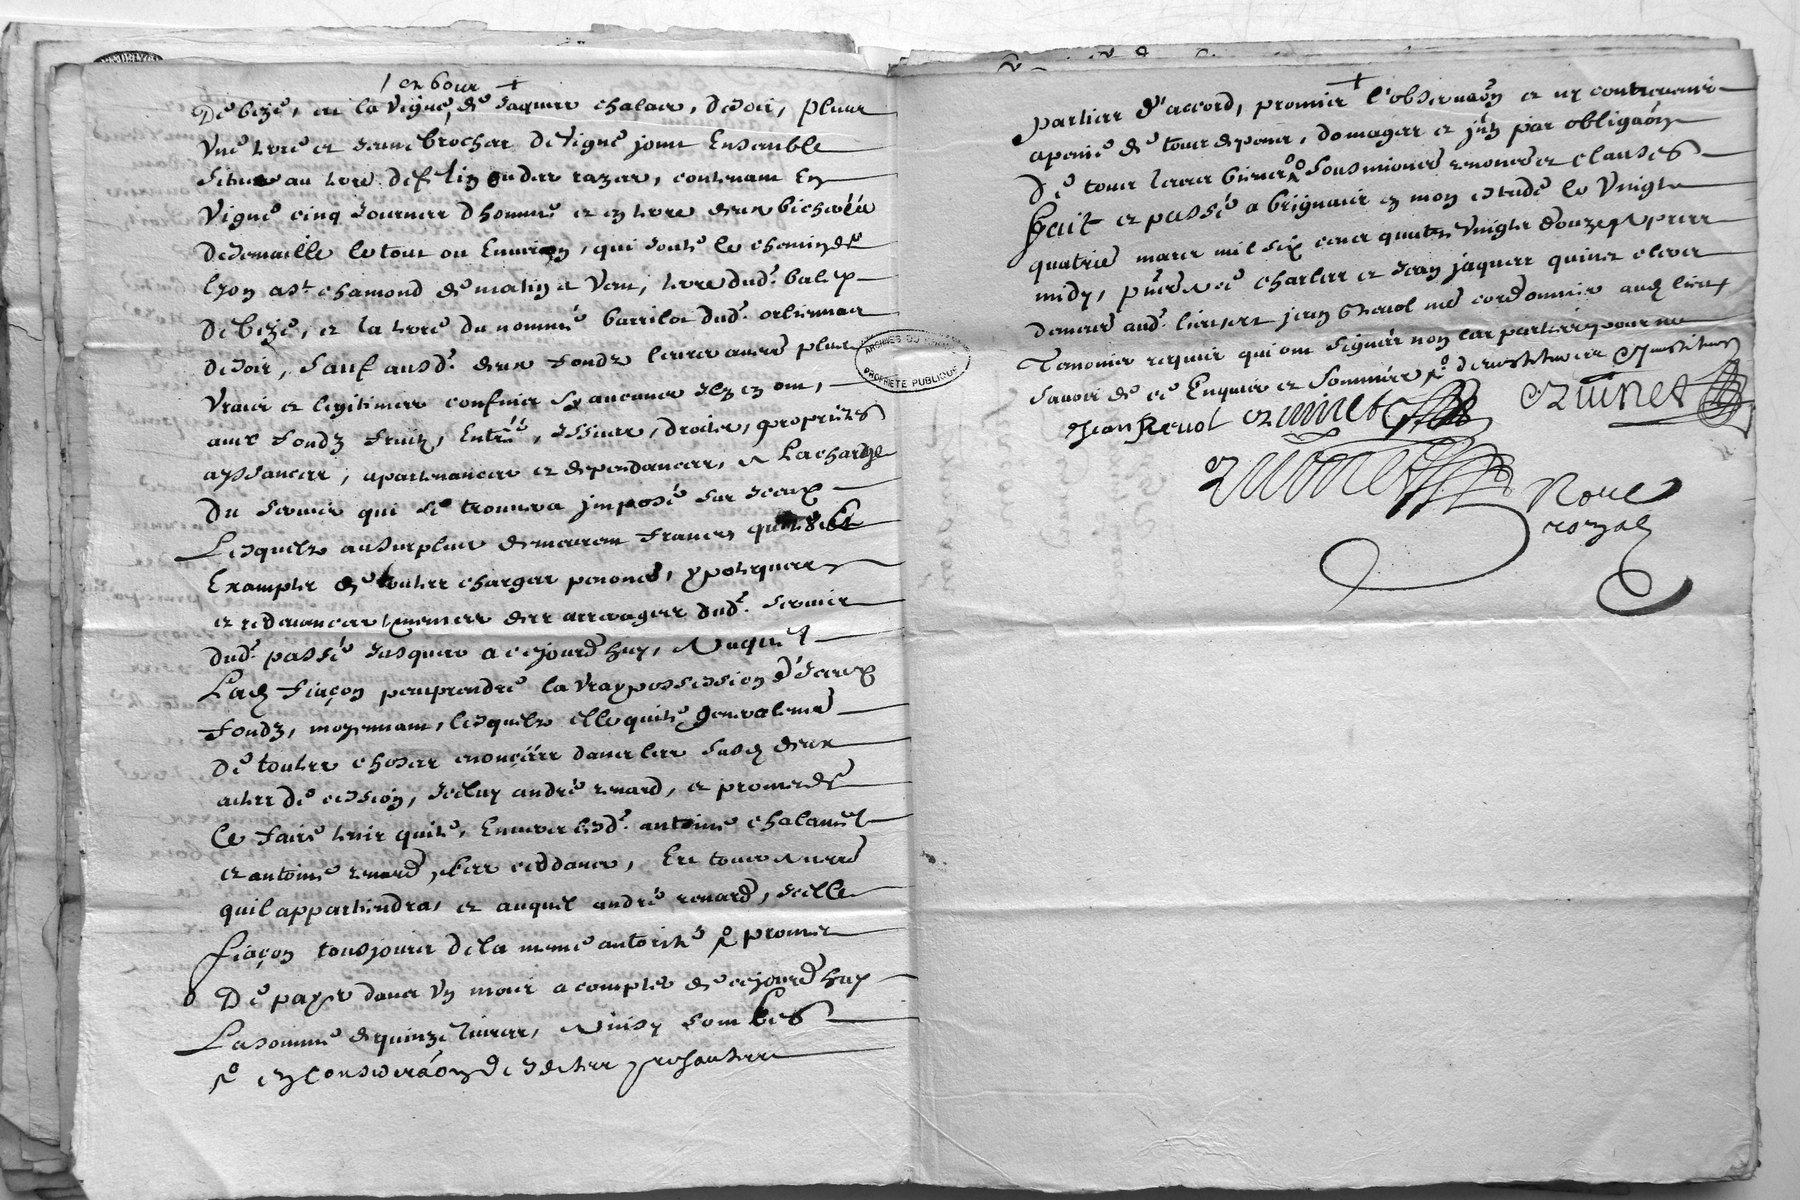 / en bour +
De bize, et la vigne de Jaques chalan, de soir, plus
Une terre et jeune brochar de vigne joint Ensemble
Situes au terre des razes, contenant En
Vigne cinq Journes d'hommes et en terre deux bicherées
de semaille le tout ou Environ, qui joute le chemin de
lyon a st chamond de matin et Vent, terre dud.
De bize, et la terre du nommé barrilot dud. orlienas
de soir, sauf ausd. deux fondz leurs autres plus
Vraies et legitimes confins sy aucunes ilz en ont,
aux fondz fruitz, Entrés, Issues, droits, proprietes
ayssances, apartenances et dependances, A La charge
Du servis qui se trouvera jmposé sur Iceux
Lesquels au surplus demeurent francz quites et
Examptz de toutes charges pencions, ypoteques
et redevances mesmes des arrerages dud. servis
Du passé jusques a cejourd'huy, Auquel
Lad. fiaçon peut prendre la vray possession d'Iceux
fondz, moyennant, lesquels elle quite generalement
De toutes choses enoncées dans les susd. deux
actes de cession, Iceluy andré renard, et promet de
le faire tenir quite, Envers lesd. antoine chalamel
et antoine renard, ses ceddans, Et tous autres
quil appartiendra, et auquel andré renard, Icelle
fiaçon tousjours de la mesme autorité promet
De payer dans Un mois a compter de cejourd'huy
La somme de quinze livres, Ainsy sont les
en consideraon De Icelles presentes
parties d'accord, promis + l'observaon et ny contrevenir
apeine de tous depens, domages et jntz par obligaon
De tous leurs biens sousmitions renonces et clauses
fait et passé a brignais en mon estude le Vingt
quatrie mars mil six cens quatre Vingts douze apres
midy, pnts Me charles et Jean jaques quinet clercs
demeure aud. lieu et jean Revol me cordonnier aud. lieu
Temoins requis qui ont signés non les parties pour ne
savoir de ce Enquis et sommés
Jean Revol Quinet Quinet
Quinet Nore
royal
ARCHIVES DU RHONE
PROPRIETE PUBLIQUE